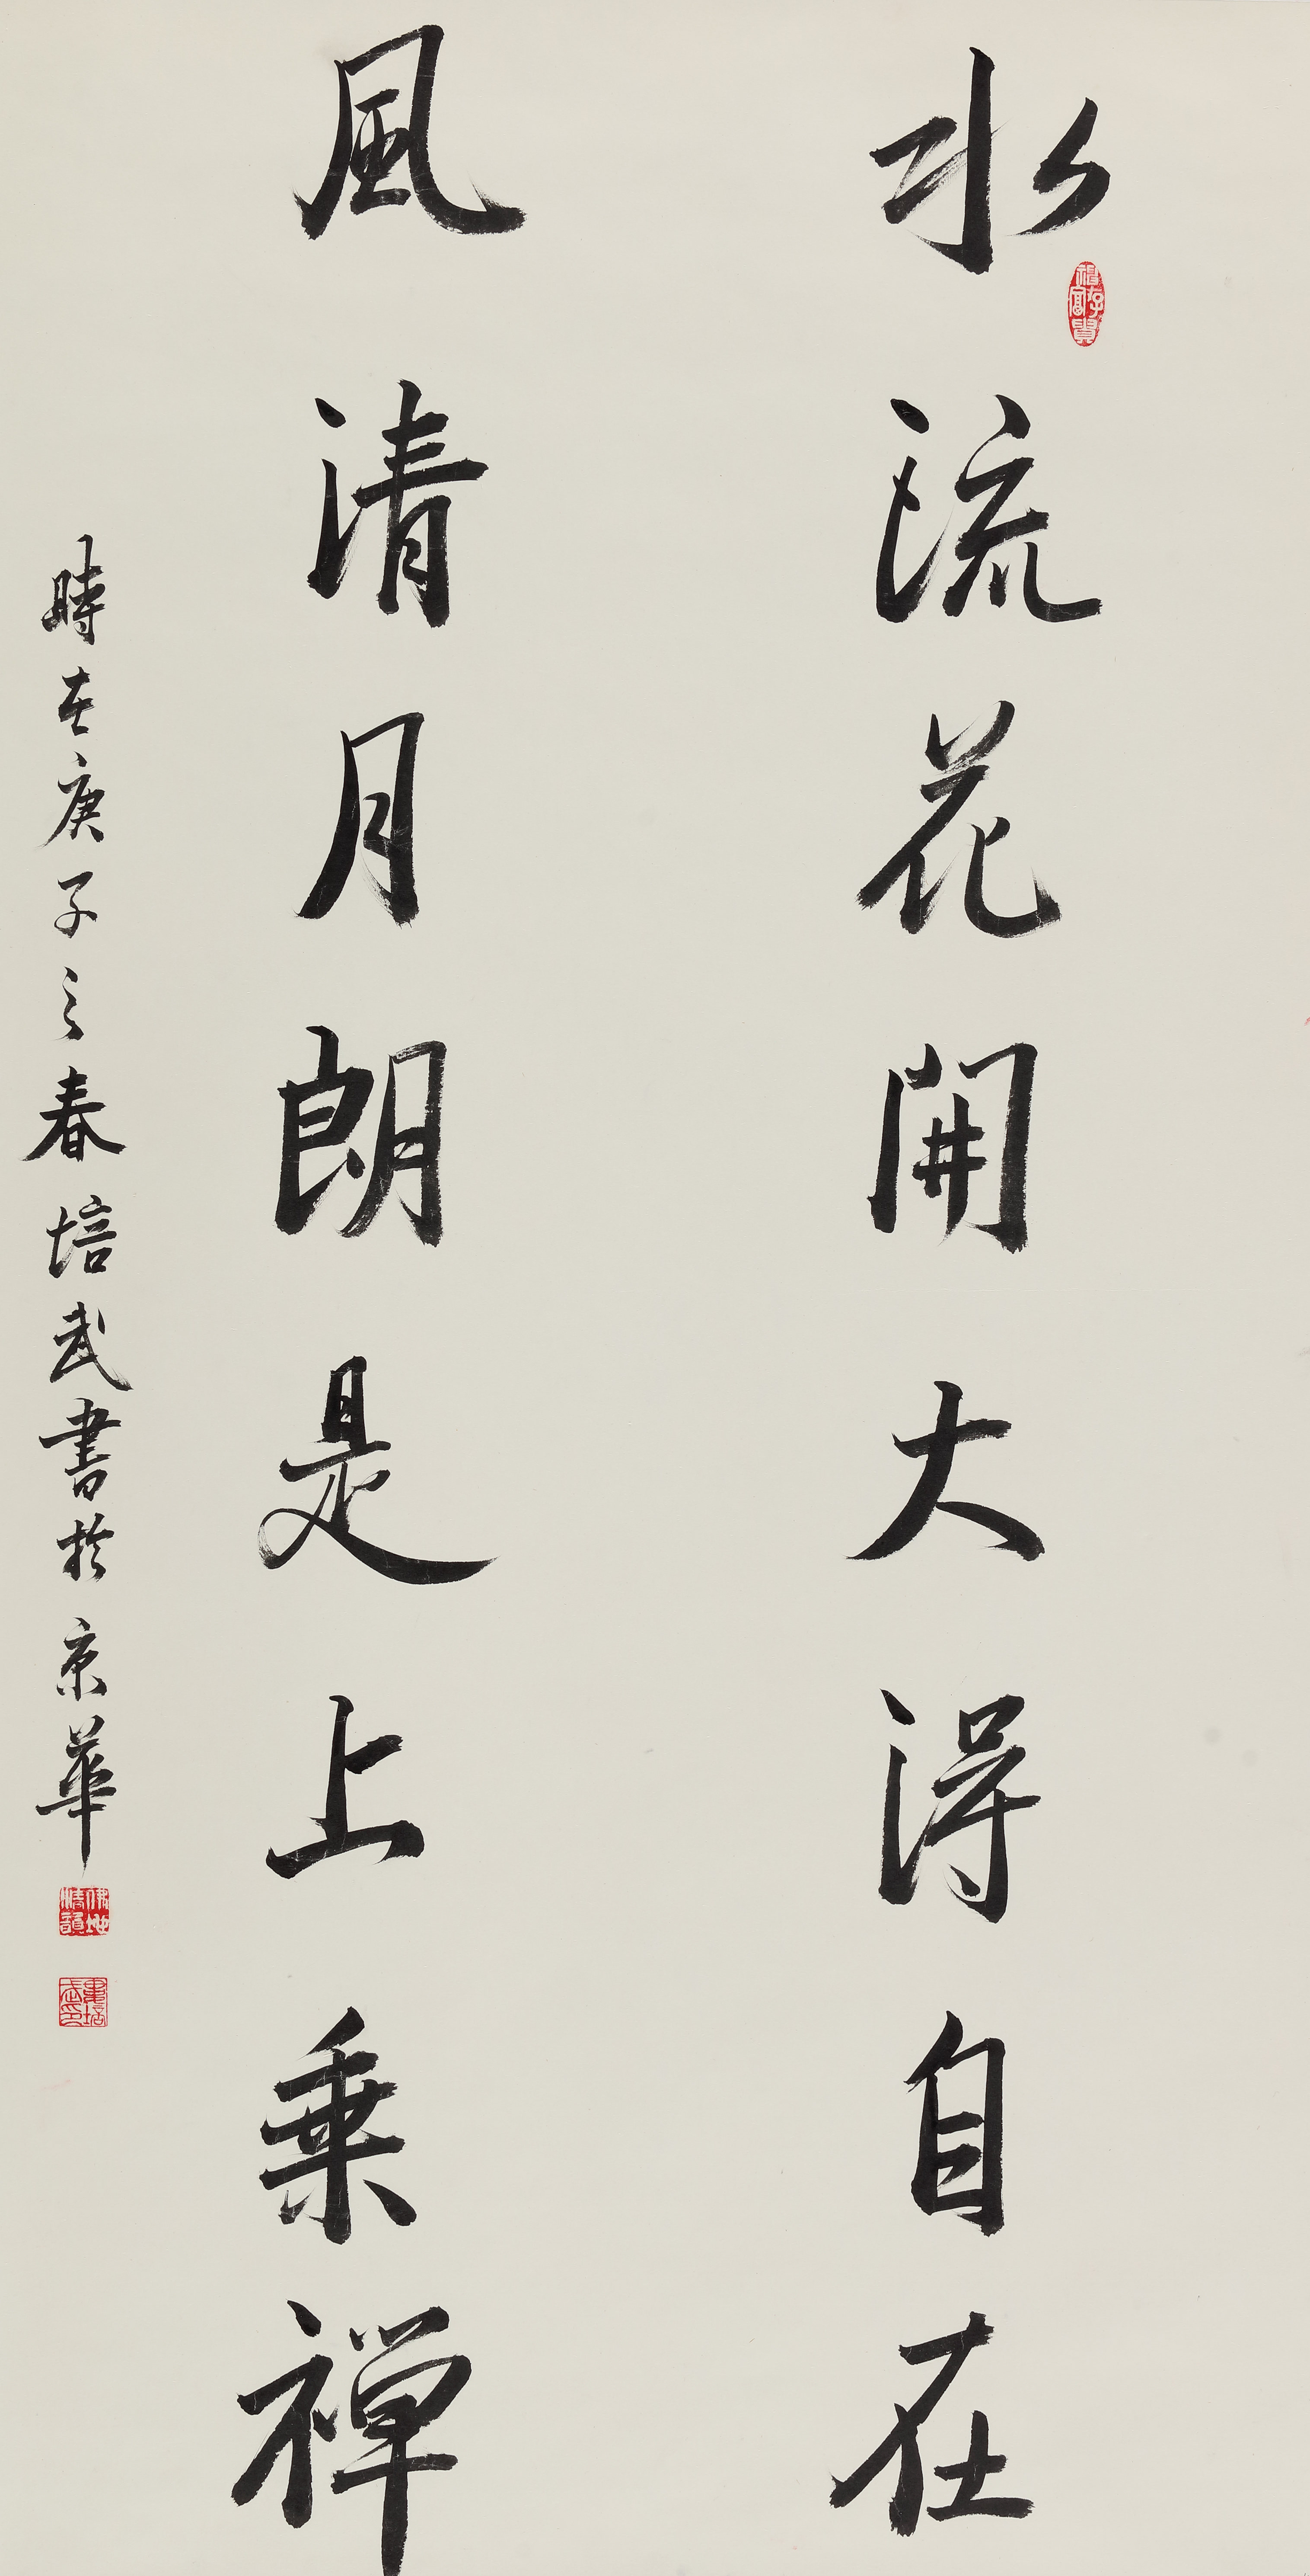 水流花開大得自在
風清月朗是上乘禅
時在庚子之春培武書於京華